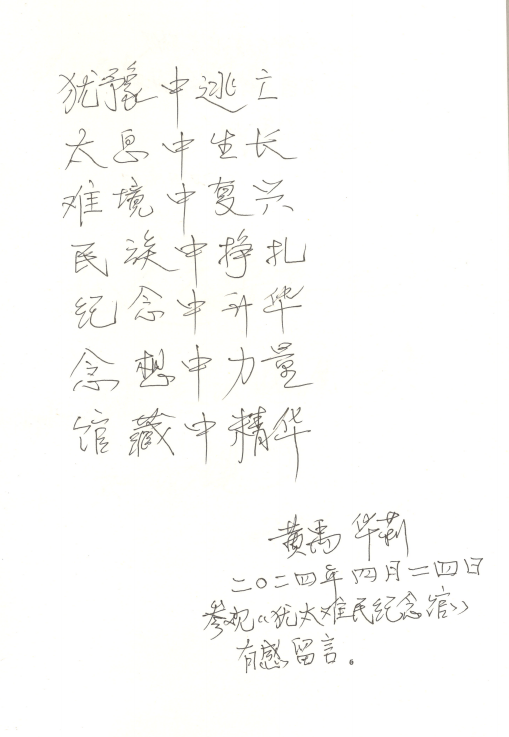 犹豫中逃亡
太息中生长
难境中复兴
民族中挣扎
纪念中升华
念想中力量
馆藏中精华
黄禹 华莉
二〇二四年四月二四日
参观《犹太难民纪念馆》
有感留言。
6